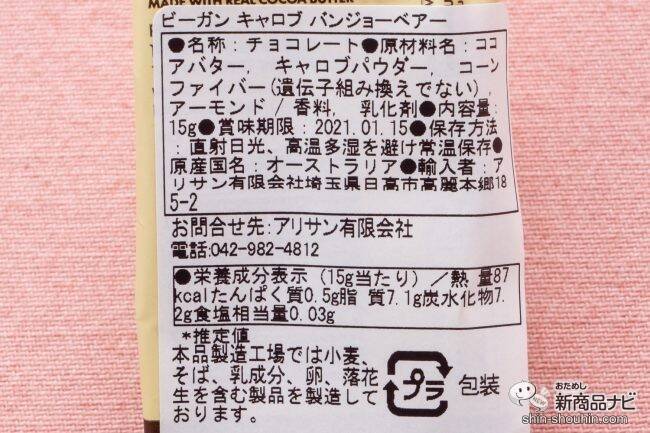 MADE WITH REAL COCOA BUTTER
ビーガン キャロブ バンジョーベアー
●名称：チョコレート●原材料名：ココ
アバター, キャロブパウダー, コーン
ファイバー(遺伝子組み換えでない),
アーモンド / 香料, 乳化剤●内容量:
15g●賞味期限：2021.01.15●保存方法
:直射日光、高温多湿を避け常温保存●
原産国名：オーストラリア●輸入者：ア
リサン有限会社埼玉県日高市高麗本郷18
5-2
お問合せ先:アリサン有限会社
電話:042-982-4812
●栄養成分表示（15g当たり）／熱 量87
kcalたんぱく質0.5g脂 質7.1g炭水化物7.
2g食塩相当量0.03g
*推定値
本品製造工場では小麦、
そば、乳成分、卵、落花
生を含む製品を製造して
おります。
プラ
包装
おためし
新商品ナビ
shin-shouhin.com